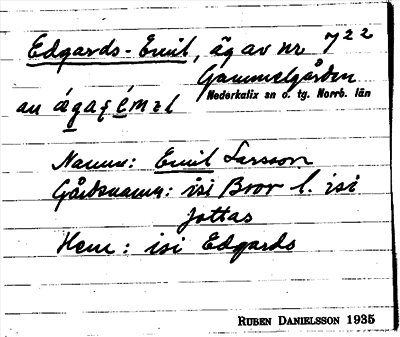 Edgards-Emil, äg av nr 722
Gammelgården
Nederkalix sn o. tg. Norrb. län
au
Namn: Emil Larsson
Gårdsnamn: isi Bror l. isi
Jottas
Hem: isi Edgards
RUBEN DANIELSSON 1935